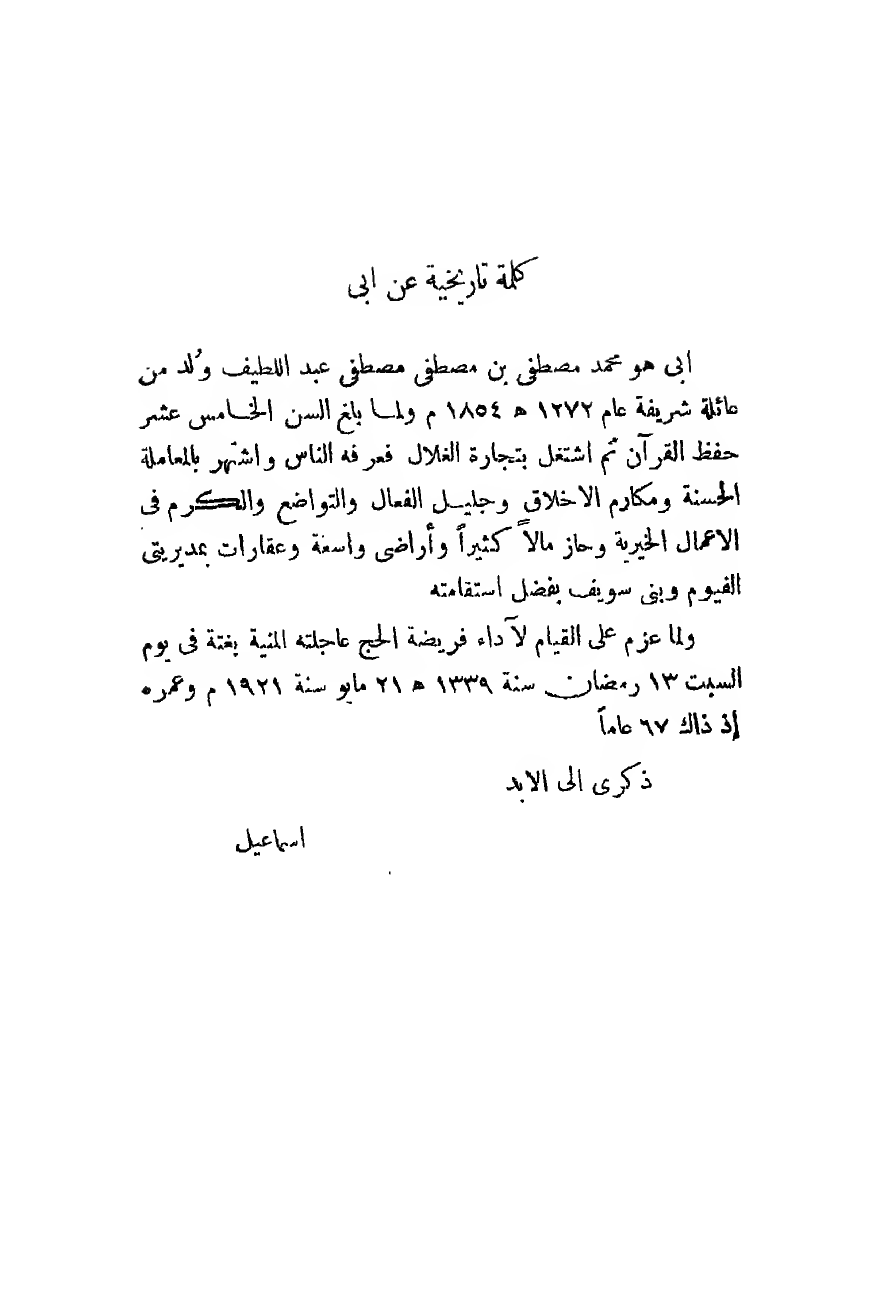 كلمة تاريخية عن ابى
ابى هو محمد مصطفى بن مصطفى مصطفى عبد اللطيف وُلد من
عائلة شريفة عام ١٢٧٢ ه ١٨٥٤ م ولمـا بلغ السن الخـامس عشر
حفظ القرآن ثم اشتغل بتجارة الغلال فعرفه الناس واشتهر بالمعاملة
الحسنة ومكارم الاخلاق وجليـل الفعال والتواضع والكرم فى
الاعمال الخيرية وحاز مالاً كثيراً وأراضى واسعة وعقارات بمديريتى
الفيوم وبنى سويف بفضل استقامته
ولما عزم على القيام لآداء فريضة الحج عاجلته المنية بغتة فى يوم
السبت ١٣ رمضان سنة ١٣٣٩ ه ٢١ مايو سنة ١٩٢١ م وعمره
إذ ذاك ٦٧ عاماً
ذكرى الى الابد
اسماعيل